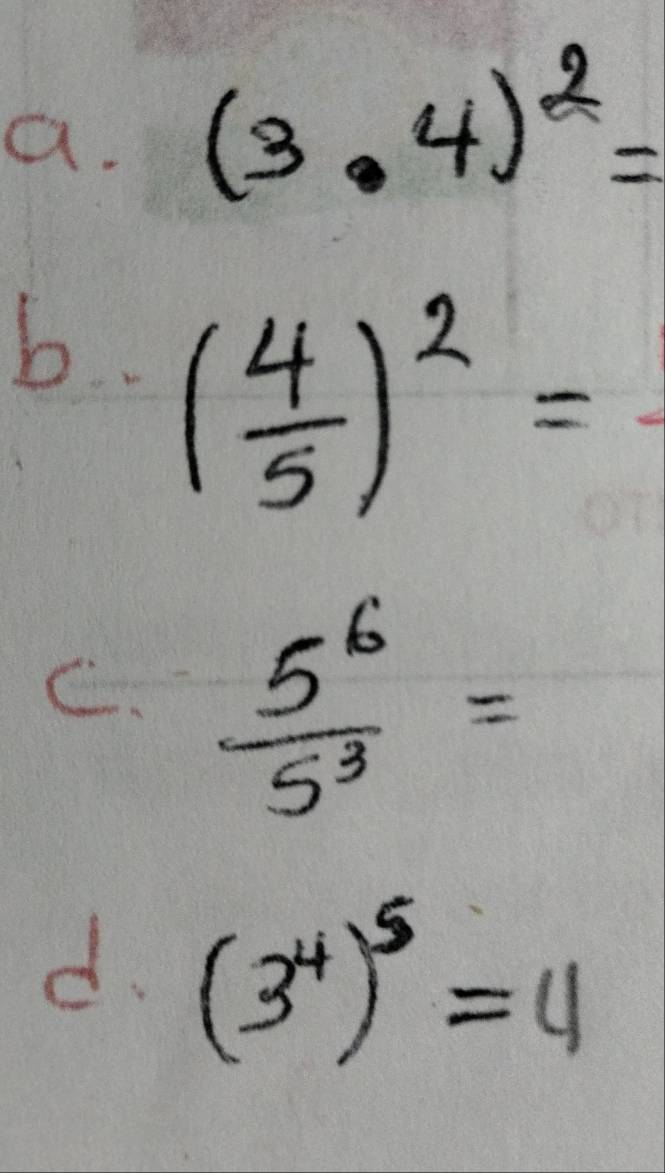 a. (3 . 4)² =
b. (4/5)² =
c. 5⁶/5³ =
d. (3⁴)⁵ = 4